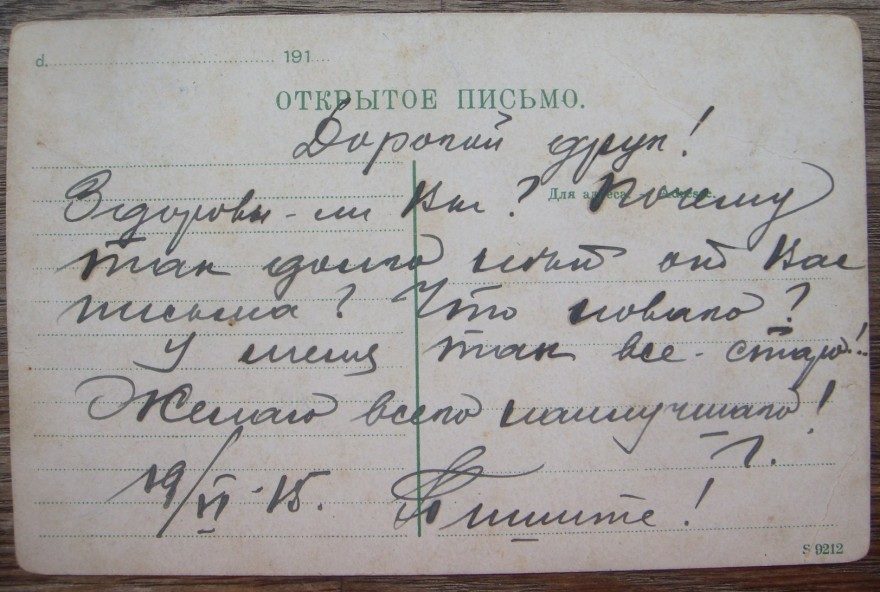 d. 191
ОТКРЫТОЕ ПИСЬМО.
Дорогой друг!
Для адреса. Adresse.
Здоровы-ли Вы? Почему
так долго нѣт от Вас
письма? Что нового?
У меня так все-старо!..
Желаю всего наилучшаго!
Г.
19/VI-15. Пишите!
S 9212